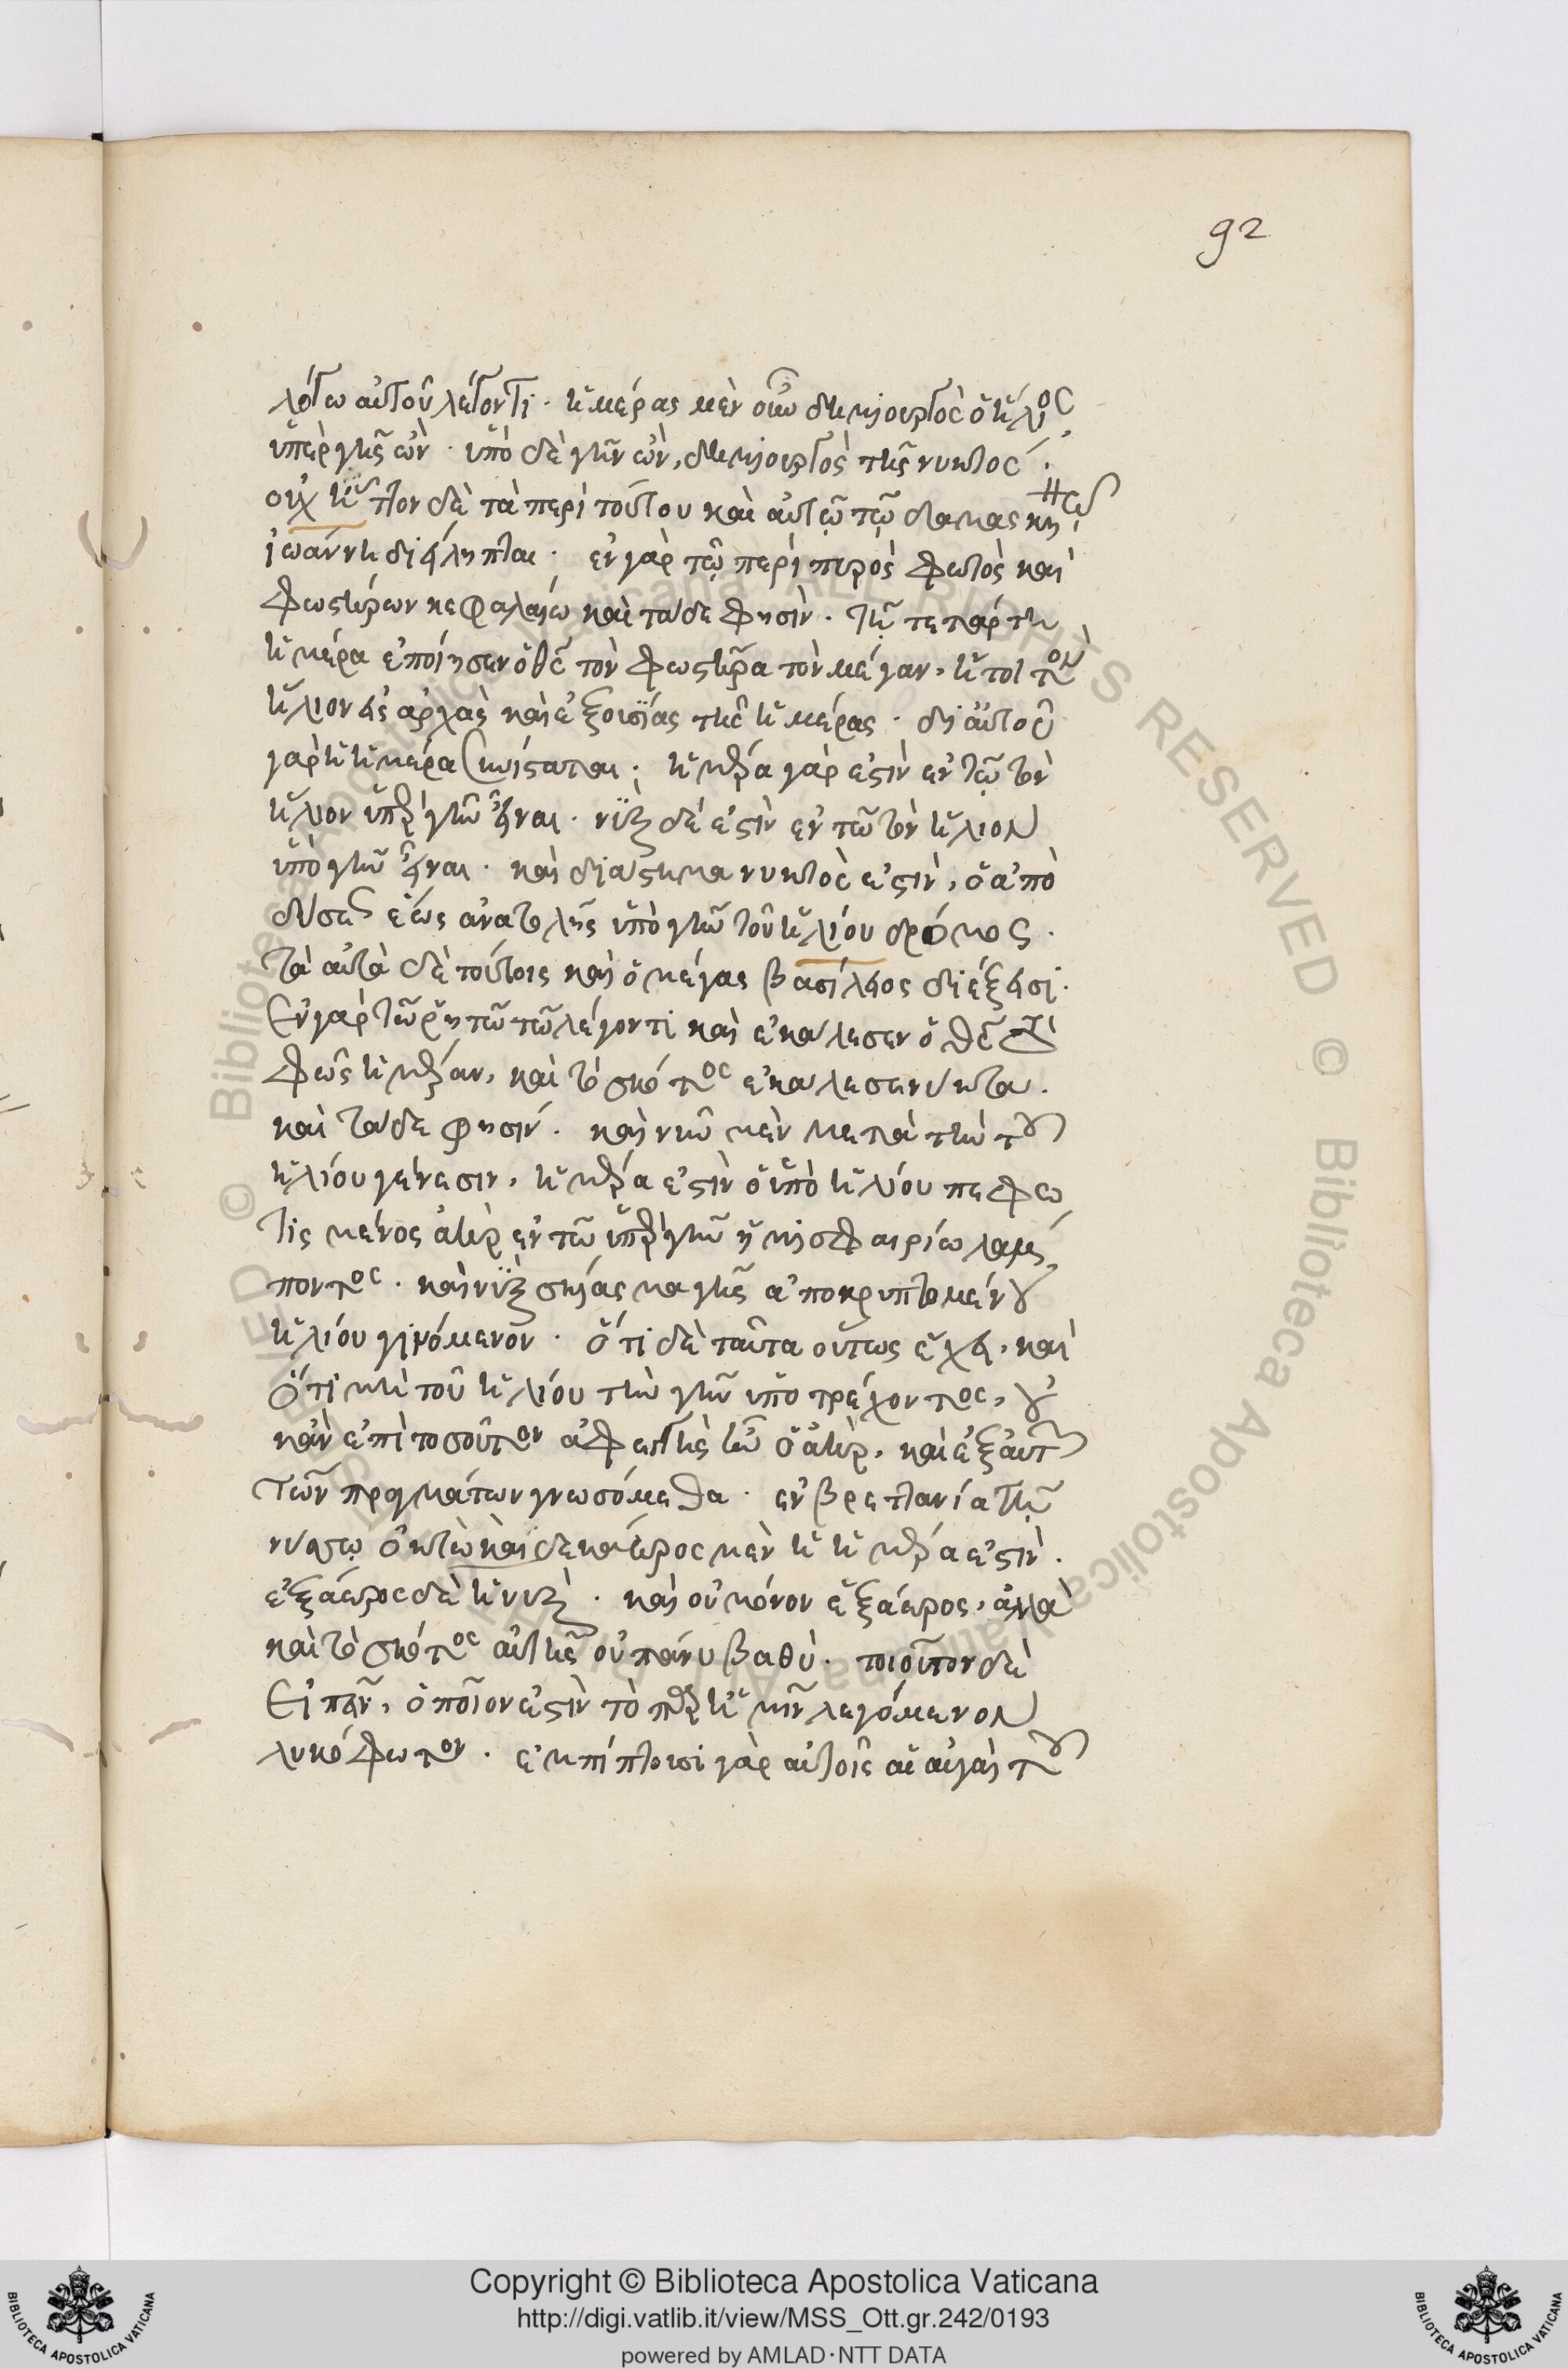 92
λόγω αὐτοῦ λέγοντι· ἡμέρας μὲν οὖν δημιουργὸς ὁ ἥλιος
ὑπὲρ γῆς ὤν· ὑπὸ δὲ γῆν ὤν, δημιουργὸς τῆς νυκτός·
οὐχ ἧττον δὲ τὰ περὶ τούτου καὶ αὐτῷ τῷ δαμασκηνῷ
ἰωάννη διείληπται· ἐν γὰρ τῷ περὶ πυρὸς φωτὸς καὶ
φωστήρων κεφαλαίω καὶ τάδε φησὶν· τῇ τετάρτη
ἡμέρα ἐποίησεν ὁ θς τὸν φωστῆρα τὸν μέγαν, ἤτοι τὸν
ἥλιον εἰς ἀρχὰς καὶ ἐξουσίας τῆς ἡμέρας· δι αὐτοῦ
γὰρ ἡ ἡμέρα συνίσταται· ἡμέρα γάρ ἐστιν ἐν τῷ τὸν
ἥλιον ὑπὲρ γῆν εἶναι· νὺξ δέ ἐστιν ἐν τῶ τὸν ἥλιον
ὑπὸ γῆν εἶναι· καὶ διάστημα νυκτός ἐστιν, ὁ ἀπὸ
δύσεως ἕως ἀνατολῆς ὑπὸ γῆν τοῦ ἡλίου δρόμος·
τὰ αὐτὰ δὲ τούτοις καὶ ὁ μέγας βασίλειος διέξεισι·
ἐν γὰρ τῶ ῥητῶ τῶ λέγοντι καὶ ἐκάλεσεν ὁ θς τὸ
φῶς ἡμέραν, καὶ τὸ σκότος ἐκάλεσε νύκτα·
καὶ τάδε φησίν· καὶ νῦν μὲν μετὰ τὴν τοῦ
ἡλίου γένεσιν, ἡμέρα ἐστὶν ὁ ὑπὸ ἡλίου πεφω
τισμένος ἀὴρ ἐν τῶ ὑπὲρ γῆν ἡμισφαιρίω λάμ
ποντος· καὶ νὺξ σκίασμα γῆς ἀποκρυπτομένου
ἡλίου γινόμενον· ὅτι δὲ ταῦτα οὕτως ἔχει, καὶ
ὅτι μὴ τοῦ ἡλίου τὴν γῆν ὑποτρέχοντος, οὐ
κἂν ἐπὶ τοσοῦτον ἀφεγγὴς ἦν ὁ ἀήρ, καὶ ἐξ αὐτῶν
τῶν πραγμάτων γνωσόμεθα· ἐν βρεττανία τῇ
νήσῳ ὀκτὼ καὶ δεκάωρος μὲν ἡ ἡμέρα ἐστὶν·
ἑξάωρος δὲ ἡ νύξ· καὶ οὐ μόνον ἑξάωρος, ἀλλὰ
καὶ τὸ σκότος αὐτῆς οὐ πάνυ βαθύ· τοιοῦτον δὲ
εἰπεῖν, ὁποῖόν ἐστιν τὸ παρ ἡμῖν λεγόμενον
λυκόφωτον· ἐκπίπτουσι γὰρ αὐτοῖς αἱ αὐγαὶ τοῦ
Copyright © Biblioteca Apostolica Vaticana
http://digi.vatlib.it/view/MSS_Ott.gr.242/0193
powered by AMLAD·NTT DATA